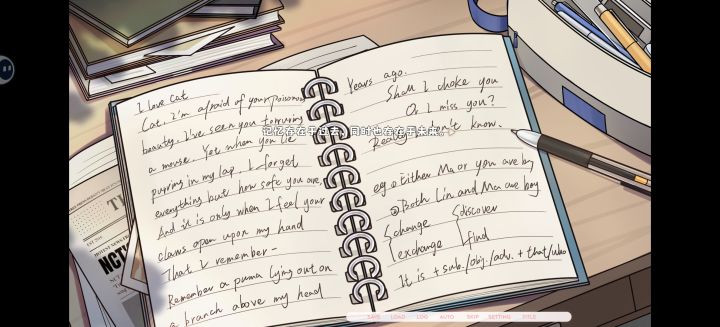 I love Cat
Cat, I'm afraid of your poisonous
beauty. I've seen you torturing
a mouse. Yet when you lie
purring in my lap, I forget
everything but how soft you are,
And it is only when I feel your
claws open upon my hand
That I remember-
Remember a puma lying out on
a branch above my head
Years ago.
Shall I choke you
Or I miss you?
Really don't know.
eg ① Either Ma or you are boy
② Both Lin and Ma are boy
change
exchange
discover
find
It is + sub./obj./adv. + that/who
记忆存在于过去，同时也存在于未来。
HOTTEST NEWS
SAVE LOAD LOG AUTO SKIP SETTING TITLE